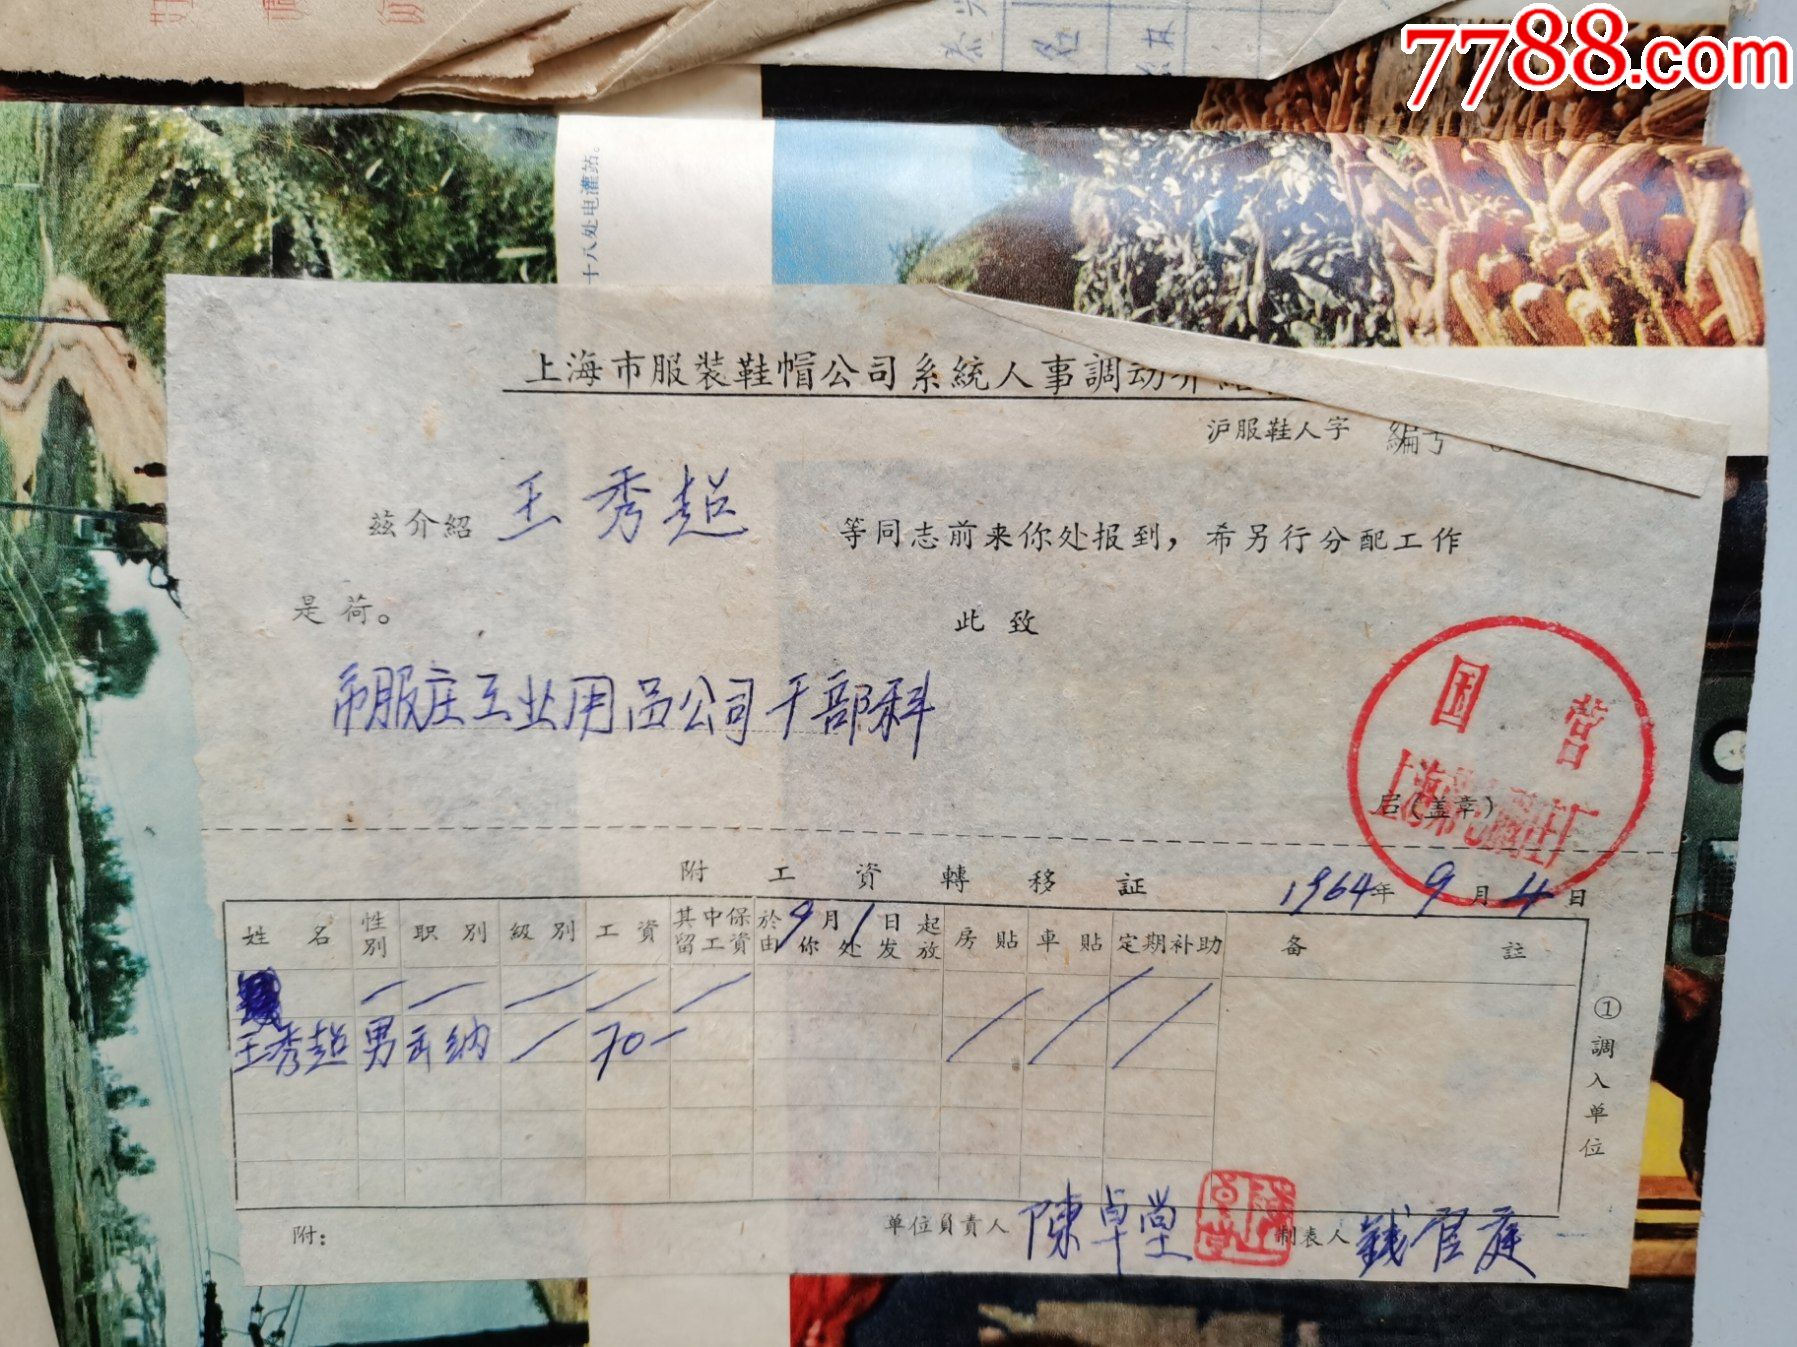 7788.com
十八处电灌站。
上海市服装鞋帽公司系統人事調动介紹
沪服鞋人字 編号
茲介紹 王秀超 等同志前来你处报到，希另行分配工作
是荷。 此致
市服庄工业用品公司干部科
国营
启（盖章）
附工資轉移証 1964年9月4日
姓名 性別 职別 級別 工資 其中保留工資 於9月1日起由你处发放 房貼 車貼 定期补助 备註
王秀超 男 云纳 70
①調入单位
附： 单位負責人 陳卓堂 制表人